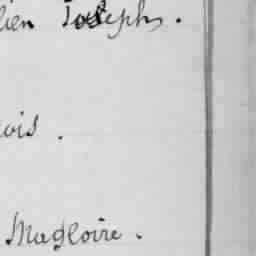 lien Joseph.
ois.
Magloire.